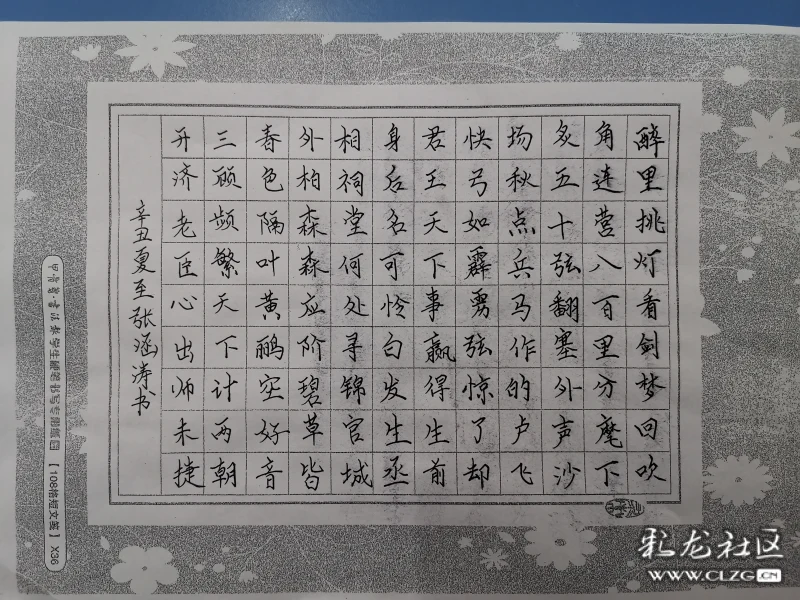 醉里挑灯看剑梦回吹
角连营八百里分麾下
炙五十弦翻塞外声沙
场秋点兵马作的卢飞
快弓如霹雳弦惊了却
君王天下事赢得生前
身后名可怜白发生丞
相祠堂何处寻锦官城
外柏森森应阶碧草皆
春色隔叶黄鹂空好音
三顾频繁天下计两朝
开济老臣心出师未捷
辛丑夏至张涵涛书
学生硬笔书写专用纸 【108格短文案】 X36
彩龙社区
WWW.CLZG.CN